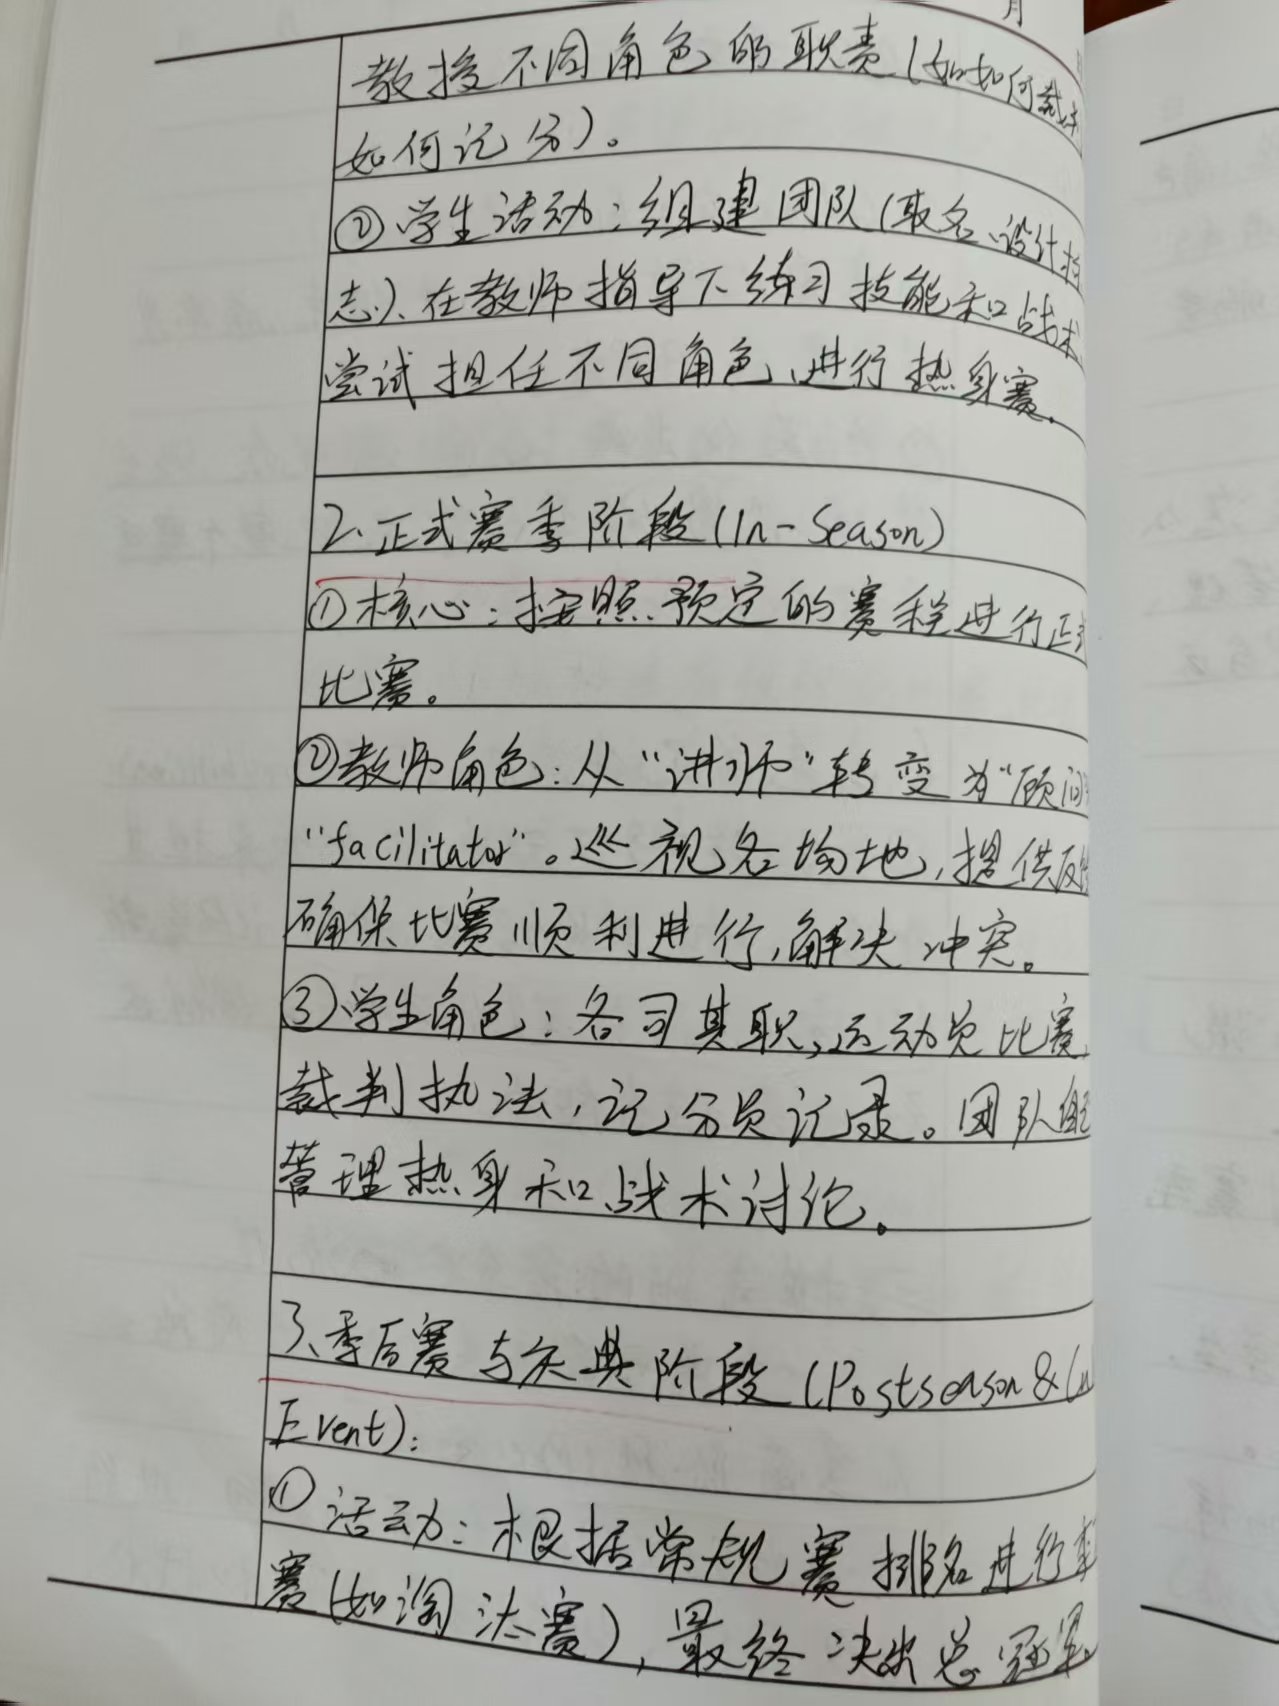 月
教授不同角色的职责(如如何裁
如何记分)。
②学生活动:组建团队(取名、设计
志)、在教师指导下练习技能和战术、
尝试担任不同角色、进行热身赛.
2、正式赛季阶段(In-Season)
①核心:按照预定的赛程进行正
比赛。
②教师角色:从“讲师”转变为“顾问
“facilitator”。巡视各场地,提供反
确保比赛顺利进行,解决冲突。
③学生角色:各司其职,运动员比赛,
裁判执法,记分员记录。团队
管理热身和战术讨论。
3、季后赛与庆典阶段(Postseason &
Event):
①活动:根据常规赛排名进行季
赛(如淘汰赛),最终决出总冠军